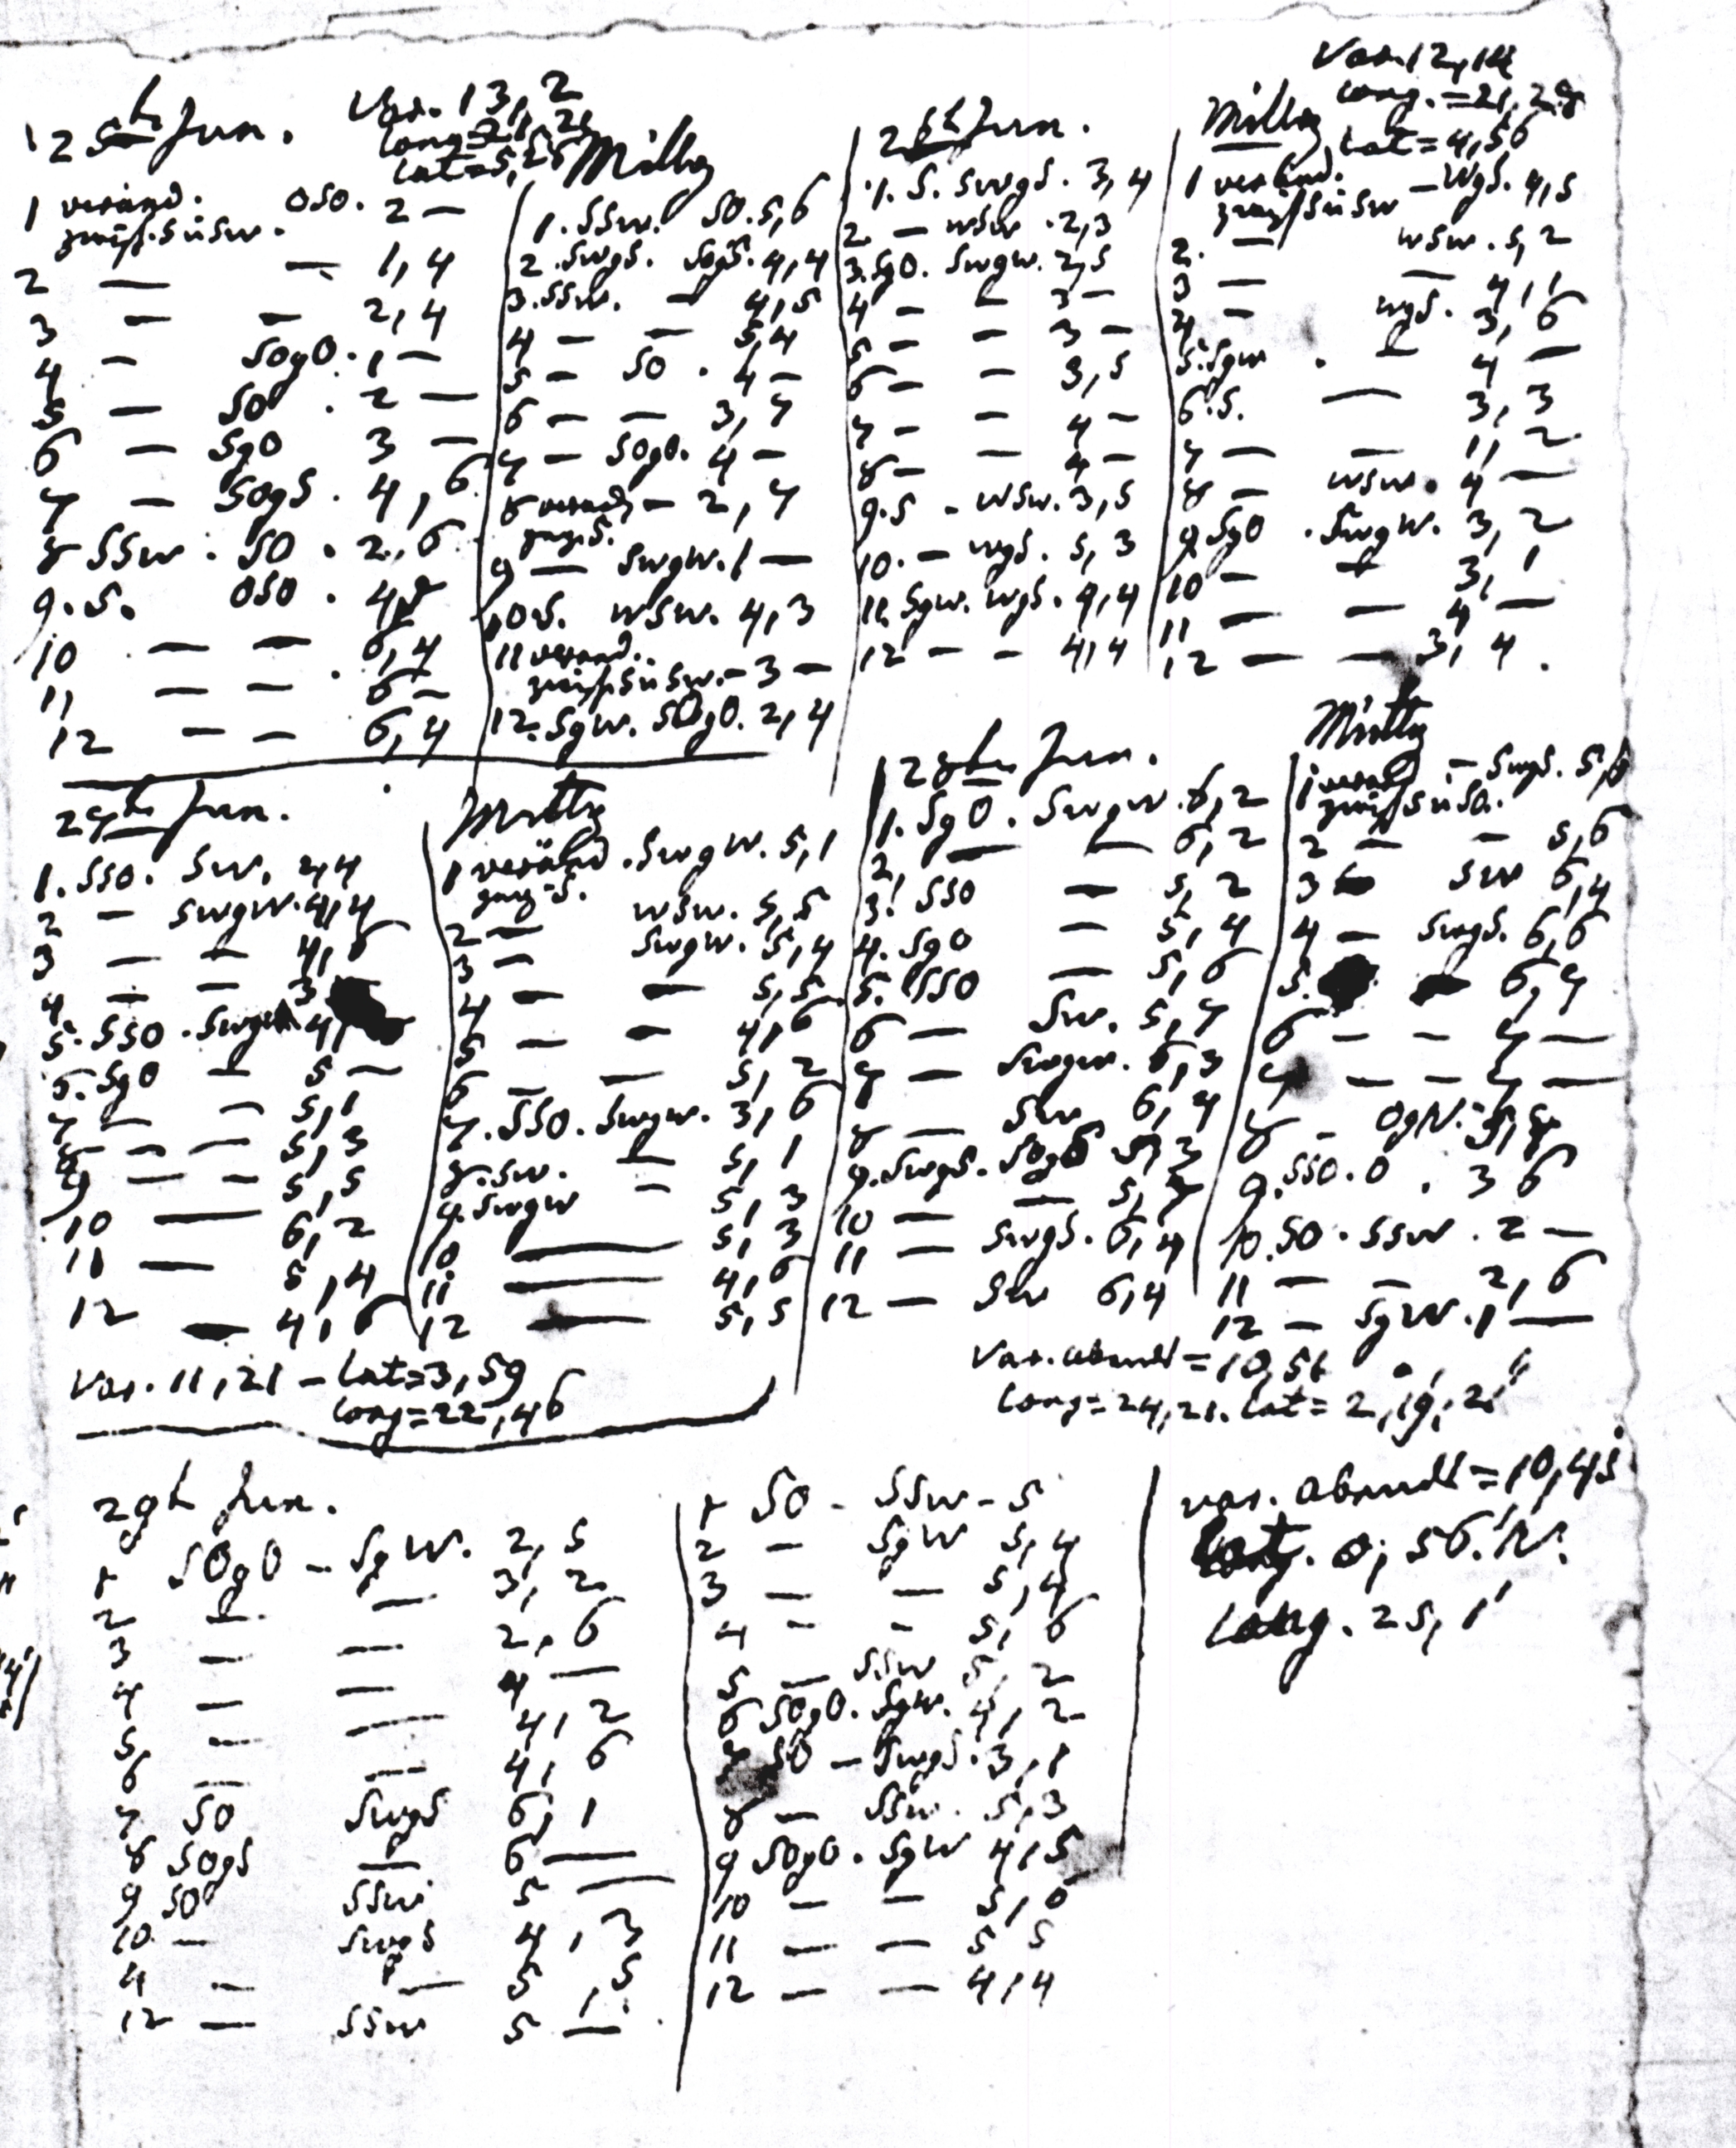 25t Jun. Var. 13,2
Long=21,21
Lat=5,25
1 veränd. OSO. 2 —
zwisch. S ü SW.
2 — — 1,4
3 — — 2,4
4 — SOgO. 1 —
5 — SO . 2 —
6 — SgO 3 —
7 — SOgS . 4,6
8 SSW . SO . 2,6
9. S. OSO .
10 — — 6,4
11 — — 6 —
12 — — 6,4
Mittag
1. SSW. SO. 5,6
2. SWgS. SOgS. 4,4
3. SSW. — 4,5
4 — — 5,4
5 — SO . 4 —
6 — — 3,7
7 — SOgO. 4 —
8 veränd — 2,7
geg. S.
9 — SWgW. 1 —
10 S. WSW. 4,3
11 veränd.
zwisch S ü SW. — 3 —
12. SgW. SOgO. 2,4
26t Jun.
1. S. SWgS. 3,4
2. — WSW . 2,3
3. SgO. SWgW. 2,5
4 — — 3 —
5 — — 3 —
6 — — 3,5
7 — — 4 —
8 — — 4 —
9. S — WSW. 3,5
10. — WgS. 5,3
11. SgW. WgS. 4,4
12 — — 4,4
Var. 12,14
Long.=21,28
Mittag Lat=4,56
1 veränd. — WgS. 4,5
zwisch S ü SW
2. — WSW. 5,2
3 — — 4,1
4 — WgS. 3,6
5. SgW . — 4 —
6. S. — 3,3
7 — — 1,2
8 — WSW. 4 —
9 SgO . SWgW. 3,2
10 — — 3,1
11 — — 4 —
12 — — 3,4 .
27t Jun.
1. SSO. SW. 2,4
2 — SWgW. 4,4
3 — — 4,6
4 — — 3
5. SSO . SWgW 4,
6. SgO — 5 —
7 — — 5,1
8 — — 5,3
9 — — 5,5
10 — 6,2
11 — 5,4
12 — 4,6
Mittag
1 veränd . SWgW. 5,1
geg S.
2 — WSW. 5,5
3 — SWgW. 5,4
4 — — 5,5
5 — — 4,6
6 — — 5,2
7. SSO. SWgW. 3,6
8. SW. — 5,1
9. SWgW — 5,3
10 — 5,3
11 — 4,6
12 — 5,5
Var. 11,21 — Lat=3,59
Long=22,46
28t Jun.
1. SgO. SWgW. 6,2
2, — — 6,2
3. SSO — 5,2
4. SgO — 5,4
5. SSO — 5,6
6 — SW. 5,7
7 — SWgW. 6,3
8 — SW 6,4
9. SWgS. SOgS
10 — — 5,
11 — SWgS. 6,4
12 — SW 6,4
Mittag
1 veränd — SWgS. 5,6
zwisch S ü SO.
2 — — 5,6
3 — SW 6,4
4 — SWgS. 6,6
5. — 6,7
6 — — 7 —
7 — — 7 —
8 — OgN.
9. SSO. O . 3 6
10. SO. SSW . 2 —
11 — — 2,6
12 — SgW. 1 —
Var. abends = 10,51
Long=24,21. Lat = 2,19,21
29t Jun.
1 SOgO — SgW. 2,5
2 — — 3,2
3 — — 2,6
4 — — 4 —
5, — — 4,2
6 — — 4,6
7 SO SWgS 6,1
8 SOgS — 6 —
9 SO SSW 5 —
10 — SWgS 4,3
11 — — 5,5
12 — SSW 5 —
1 SO — SSW — 5
2 — SgW 5,4
3 — — 5,4
4 — — 5,6
5 — SSW 5,2
6 SOgO. SgW. 4,2
7 SO — SWgS. 3,1
8 — SSW. 5,3
9 SOgO. SgW 4,5
10 — — 5,0
11 — — 5 5
12 — — 4,4
Var. abends = 10,45
Lat. 0, 56. N.
Long. 25, 1'